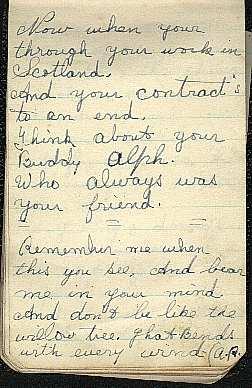 Now when your
through your work in
Scotland.
And your contract's
to an end.
Think about your
Buddy Alph.
Who always was
your friend.
Remember me when
this you see. And bear
me in your mind
And don't be like the
willow tree. That Bends
with every wind (A.R.